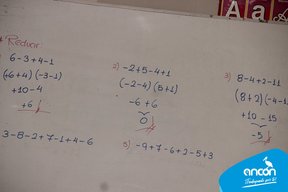 Aa
Reducir:
6-3+4-1
(+6+4) (-3-1)
+10-4
+6
2) -2+5-4+1
(-2-4) (5+1)
-6+6
0
3) 8-4+2-11
(8+2) (-4-11
+10-15
-5
3-8-2+7-1+4-6
5) -9+7-6+2-5+3
ancón